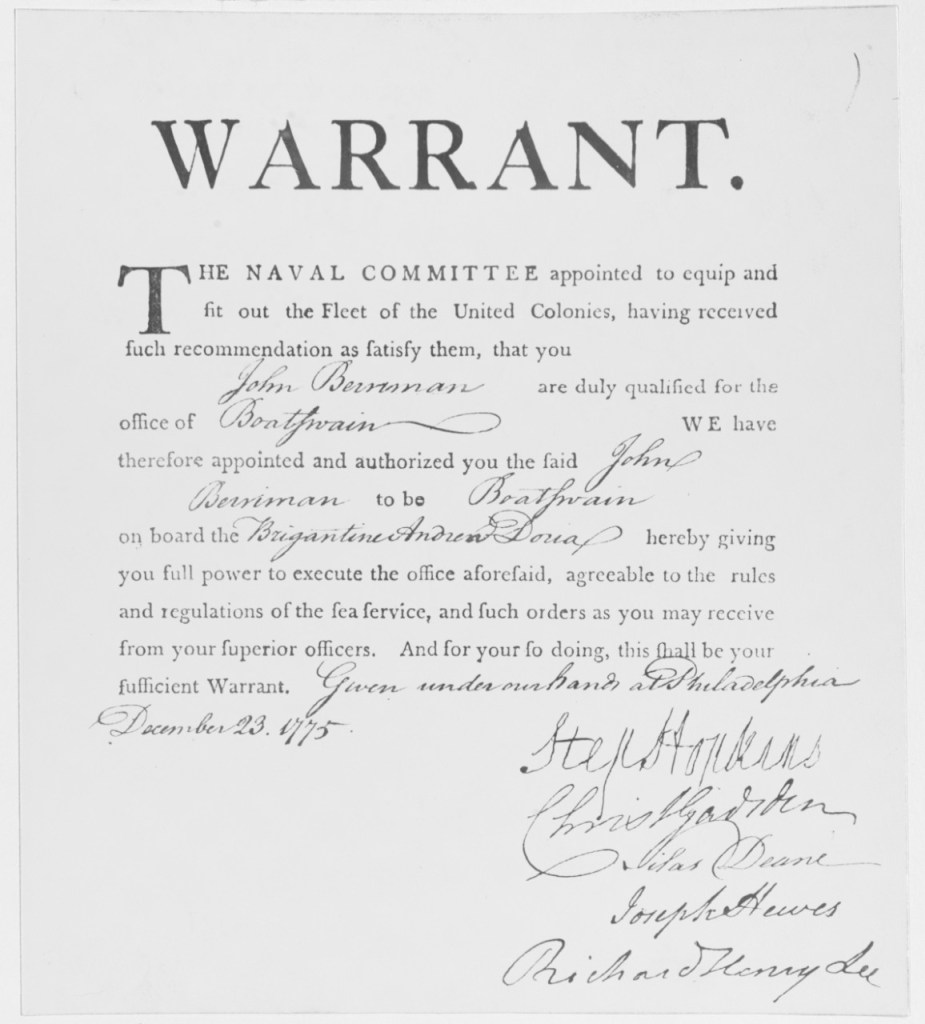 WARRANT.
THE NAVAL COMMITTEE appointed to equip and
fit out the Fleet of the United Colonies, having received
ſuch recommendation as ſatisfy them, that you
John Berriman are duly qualified for the
office of Boatſwain WE have
therefore appointed and authorized you the ſaid John
Berriman to be Boatſwain
on board the Brigantine Andrew Doria hereby giving
you full power to execute the office aforeſaid, agreeable to the rules
and regulations of the ſea ſervice, and ſuch orders as you may receive
from your ſuperior officers. And for your ſo doing, this ſhall be your
ſufficient Warrant. Given under our hands at Philadelphia
December 23. 1775.
Step Hopkins
Christ Gadsden
Silas Deane
Joseph Hewes
Richard Henry Lee